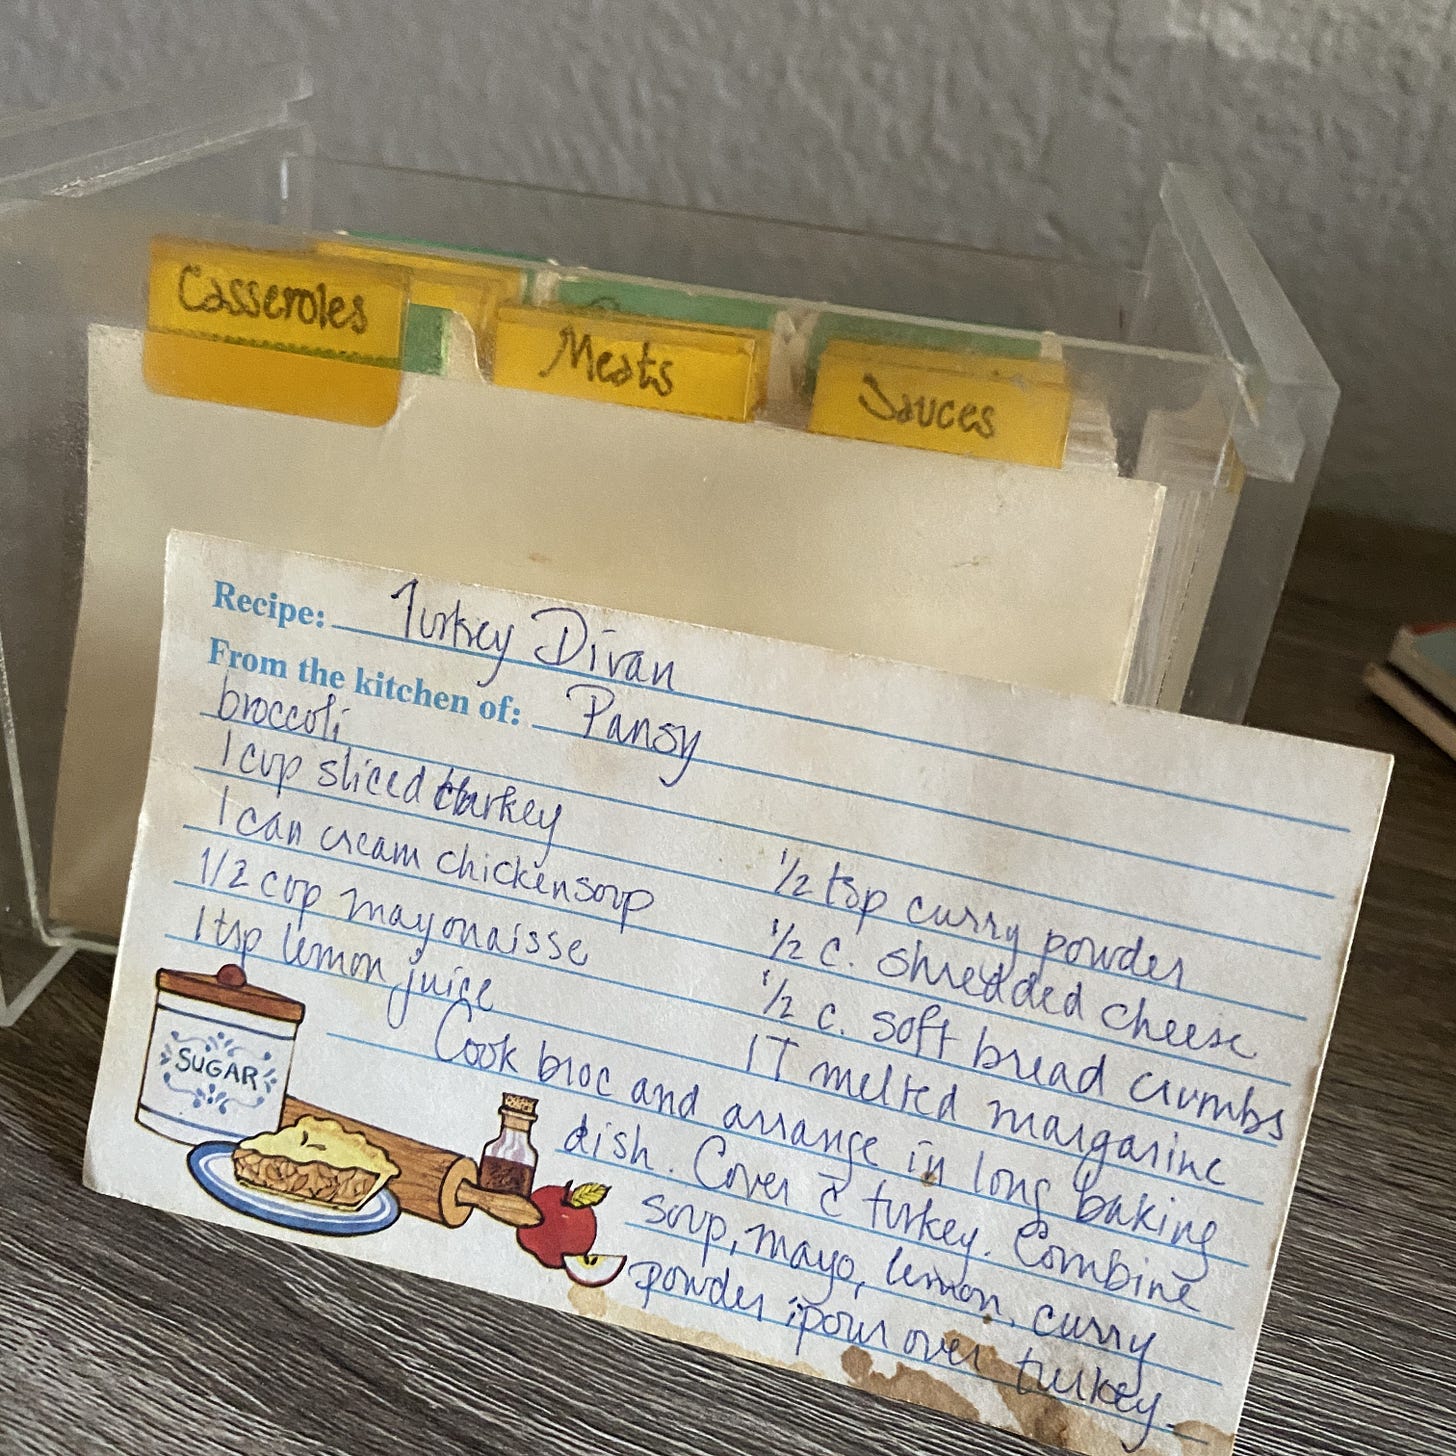 Casseroles
Meats
Sauces
Recipe: Turkey Divan
From the kitchen of: Pansy
broccoli
1 cup sliced turkey
1 can cream chicken soup
1/2 cup mayonaisse
1 tsp lemon juice
1/2 tsp curry powder
1/2 c. shredded cheese
1/2 c. soft bread crumbs
1 T melted margarine
Cook broc and arrange in long baking
dish. Cover c̄ turkey. Combine
soup, mayo, lemon, curry
powder; pour over turkey.
SUGAR